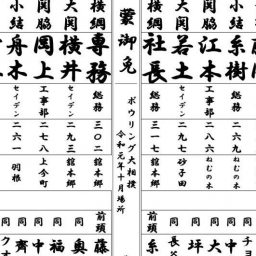 蒙御免
ボウリング大相撲
令和元年十月場所
横綱 社長
大関 若土 セイデン 二九七 砂子田
関脇 江本 工事部 二八六 ねむの木
小結 糸樹 総務 二六九 ねむの木
前頭 糸
同 長
同 坪
同 大
同 中
横綱 専務 総務 三〇二 舘本郷
大関 横井 セイデン 二九九 舘本郷
関脇 岡上 工事部 二七八 上今町
小結 舟木 セイデン 二六一 羽根
前頭 藤
同 奥
同 福
同 中
同 齊